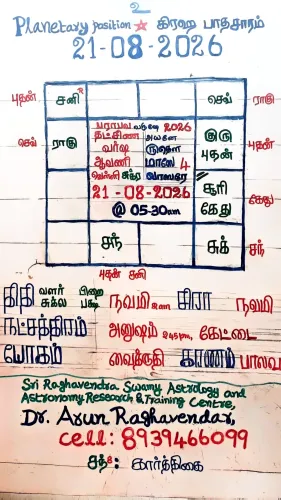 2
Planetary position ☆ கிரஹ பாதசாரம்
21-08-2026
புதன் சனி R செவ் ராகு
பராபவ வருஷ 2026
தட்சிண அயனே
செவ் ராகு வர்ஷ ருதௌ குரு புதன் புதன்
ஆவணி மாஸே 4
வெள்ளி சுக்ர வாஸரே
21-08-2026
சூரி கேது கேது
@ 05-30am
சந் சுக் சந்
புதன் சனி
திதி வளர் பிறை சுக்ல பக்ஷ நவமி கிரா நவமி
நட்சத்திரம் அனுஷம் 2:45pm, கேட்டை
யோகம் வைத்ருதி காணம் பாலவ
Sri Raghavendra Swamy Astrology and
Astronomy Research & Training Centre,
Dr. Arun Raghavendar,
cell: 8939466099
சந்: கார்த்திகை